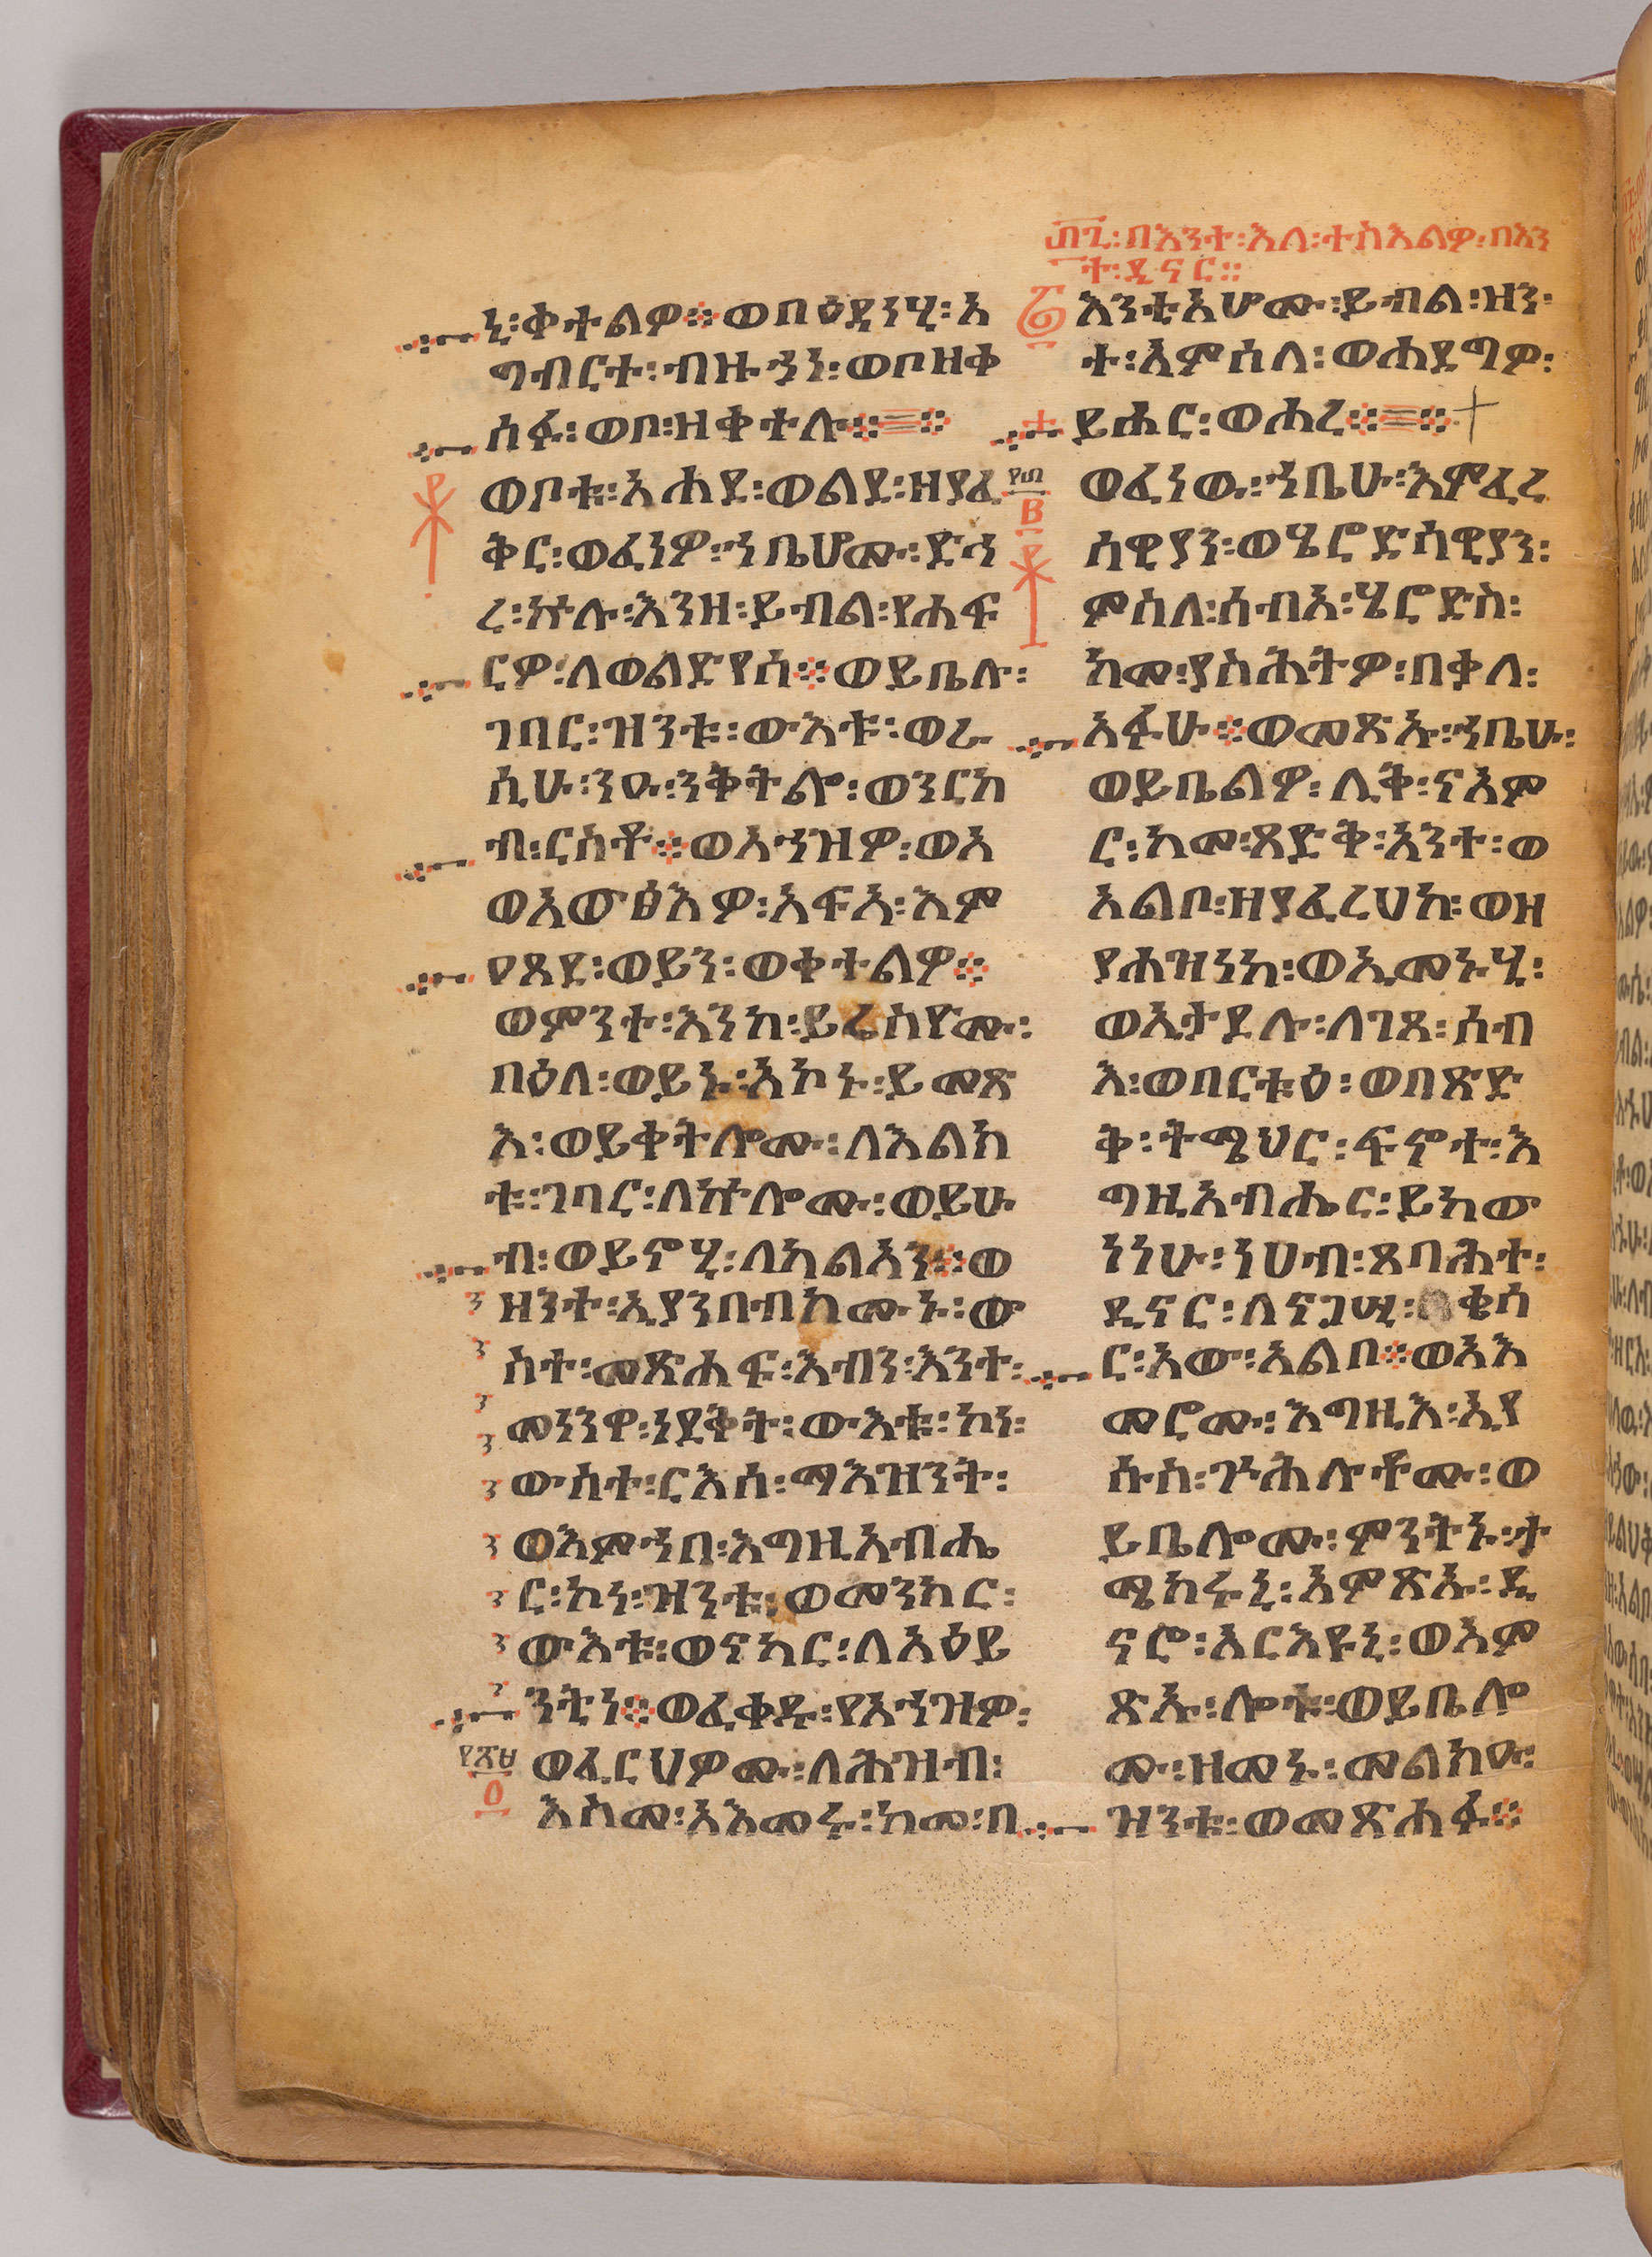 ፴፫፡በእንተ፡እለ፡ተስእልዎ፡በእን
ተ፡ዲናር።
ኒ፡ቀተልዎ፨ወበዕዲንሂ፡አ
ግብርተ፡ብዙኃነ፡ወቦዘቀ
ሰፉ፡ወቦ፡ዘቀተሉ፨፨
ወቦቱ፡አሐደ፡ወልደ፡ዘያፈ
ቅር፡ወፈነዎ፡ኀቤሆሙ፡ድኅ
ረ፡ኵሉ፡እንዘ፡ይብል፡የሐፍ
ርዎ፡ለወልድየሰ፨ወይቤሉ፡
ገባር፡ዝንቱ፡ውእቱ፡ወራ
ሲሁ፡ንዑ፡ንቅትሎ፡ወንርከ
ብ፡ርስቶ፨ወአኀዝዎ፡ወአ
ወአውፅእዎ፡አፍአ፡እም
ዐጸደ፡ወይን፡ወቀተልዎ፨
ወምንተ፡እንከ፡ይሬስዮሙ፡
በዕለ፡ወይኑ፡አኮኑ፡ይመጽ
እ፡ወይቀትሎሙ፡ለእልክ
ቱ፡ገባር፡ለኵሎሙ፡ወይሁ
ብ፡ወይኖሂ፡ለካልአን፨ወ
ዘንተ፡ኢያንበብክሙኑ፡ው
ስተ፡መጽሐፍ፡እብን፡እንተ፡
መነንዋ፡ነደቅት፡ውእቱ፡ኮነ፡
ውስተ፡ርእሰ፡ማእዝንት፡
ወእምኀበ፡እግዚአብሔ
ር፡ኮነ፡ዝንቱ፡ወመንክር፡
ውእቱ፡ወናካር፡ለአዕይ
ንቲነ፨ወፈቀዱ፡የአኀዝዎ፡
ወፈርህዎሙ፡ለሕዝብ፡
እስመ፡አእመሩ፡ከመ፡በ
እንቲአሆሙ፡ይብል፡ዘን
ተ፡አምሰለ፡ወሐደግዎ፡
ይሐር፡ወሐረ፨፨
ወፈነዉ፡ኀቤሁ፡እምፈረ
ሳዊያን፡ወሄሮድሳዊያን፡
ምስለ፡ሰብአ፡ሄሮድስ፡
ከመ፡ያስሕትዎ፡በቃለ፡
አፉሁ፨ወመጽኡ፡ኀቤሁ፡
ወይቤልዎ፡ሊቅ፡ናአም
ር፡ከመ፡ጻድቅ፡አንተ፡ወ
አልቦ፡ዘያፈረሀከ፡ወዘ
ያሐዝነከ፡ወኢመኑሂ፡
ወኢታደሉ፡ለገጸ፡ሰብ
እ፡ወበርቱዕ፡ወበጽድ
ቅ፡ትሜህር፡ፍኖተ፡እ
ግዚአብሔር፡ይከው
ነነሁ፡ነሀብ፡ጸባሕተ፡
ዲናር፡ለናጋሢ፡ቄሳ
ር፡አው፡አልቦ፨ወአእ
መሮሙ፡እግዚእ፡ኢየ
ሱስ፡ጕሕሉቶሙ፡ወ
ይቤሎሙ፡ምንትኑ፡ት
ሜክሩኒ፡አምጽኡ፡ዲ
ናሮ፡አርእዩኒ፡ወአም
ጽኡ፡ሎቱ፡ወይቤሎ
ሙ፡ዘመኑ፡መልክዑ፡
ዝንቱ፡ወመጽሐፉ፨